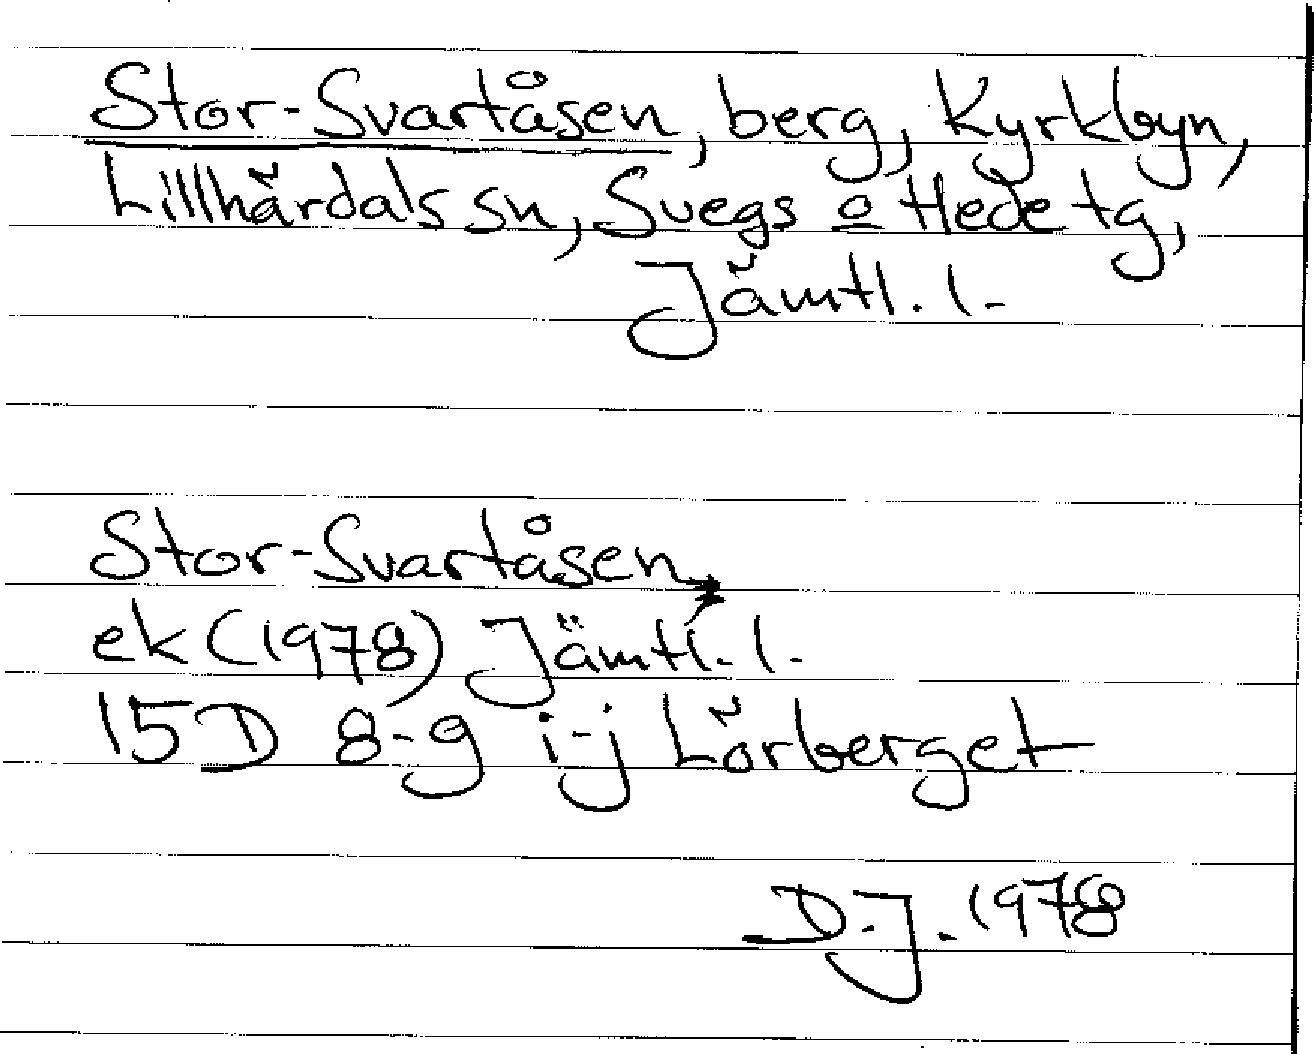 Stor-Svartåsen, berg, Kyrkbyn,
Lillhärdals sn, Svegs o Hede tg,
Jämtl. l.
Stor-Svartåsen
ek (1978) Jämtl. l.
15D 8-9 i-j Lörberget
D.J. 1978